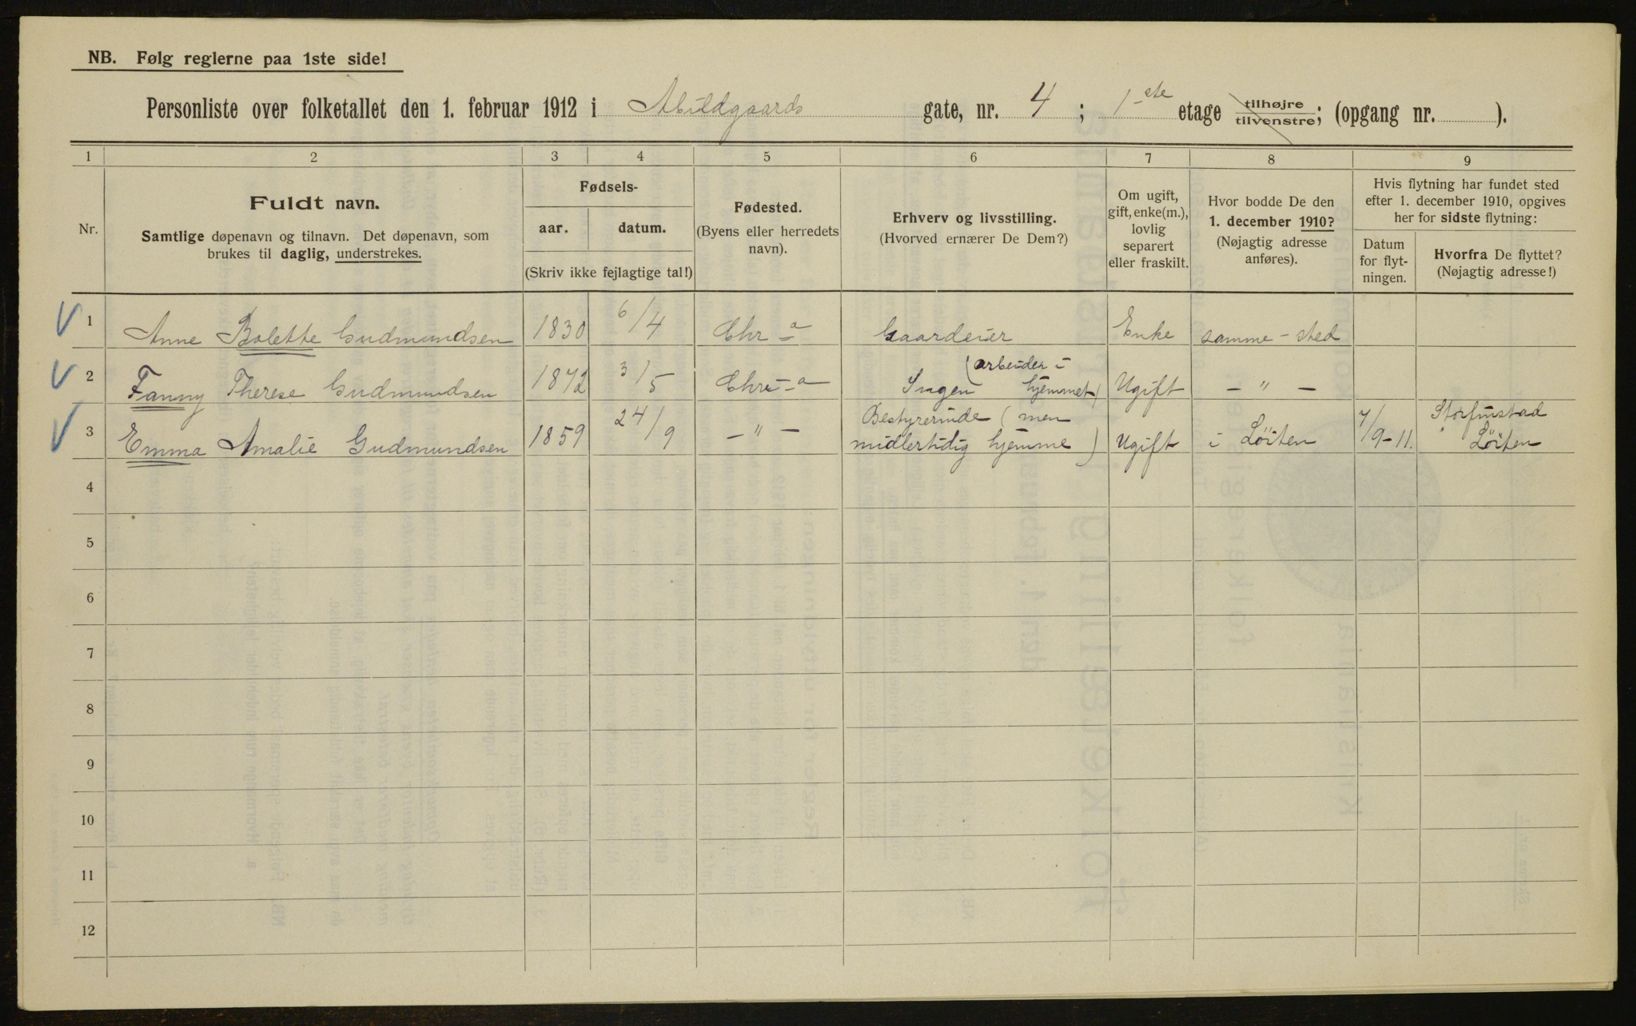 NB. Følg reglerne paa 1ste side!
Personliste over folketallet den 1. februar 1912 i Abildgaards gate, nr. 4 ; 1-ste etage tilhøjre tilvenstre; (opgang nr. ).
1 2 3 4 5 6 7 8 9
Nr.
Fuldt navn.
Samtlige døpenavn og tilnavn. Det døpenavn, som
brukes til daglig, understrekes.
Fødsels-
aar. datum.
(Skriv ikke fejlagtige tal!)
Fødested.
(Byens eller herredets
navn).
Erhverv og livsstilling.
(Hvorved ernærer De Dem?)
Om ugift,
gift, enke(m.),
lovlig
separert
eller fraskilt.
Hvor bodde De den
1. december 1910?
(Nøjagtig adresse
anføres).
Hvis flytning har fundet sted
efter 1. december 1910, opgives
her for sidste flytning:
Datum
for flyt-
ningen.
Hvorfra De flyttet?
(Nøjagtig adresse!)
1 Anne Bolette Gudmundsen 1830 6/4 Chr-a Gaardeier Enke samme-sted
2 Fanny Therese Gudmundsen 1872 3/5 Chr-a Ingen (arbeider i hjemmet) Ugift - " -
3 Emma Amalie Gudmundsen 1859 24/9 - " - Bestyrerinde (men midlertidig hjemme) Ugift i Löiten 7/9-11. Löiten
4
5
6
7
8
9
10
11
12